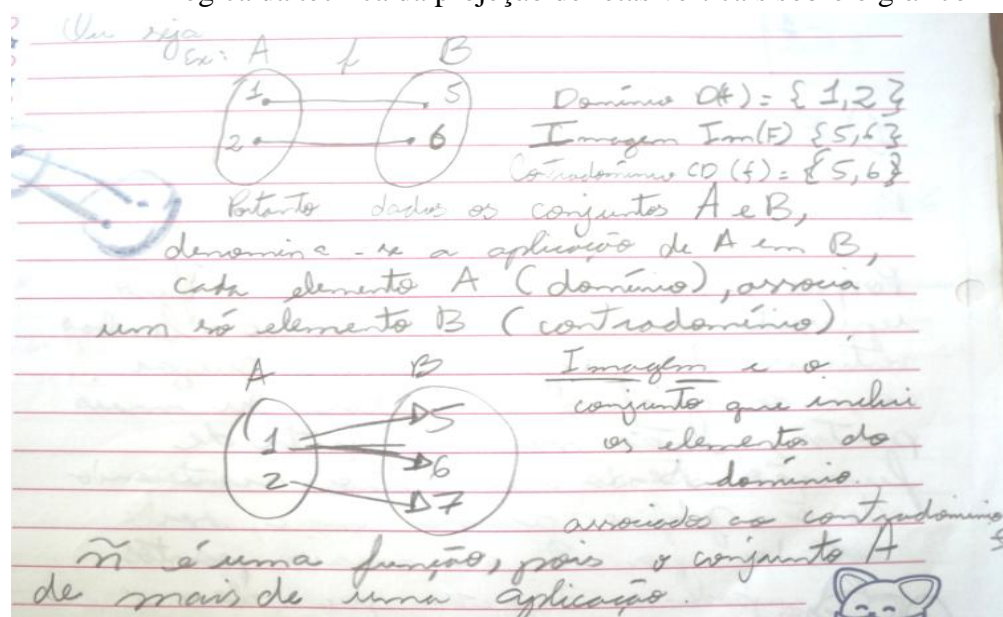 da técnica da projeção de retas verticais sobre o gráfico
Ou seja
Ex: A f B
1 5
2 6
Domínio D(f) = { 1,2 }
Imagem Im(F) {5,6}
Contradomínio CD (f) = {5,6}
Portanto dados os conjuntos A e B,
denomina-se a aplicação de A em B,
cada elemento A (domínio), associa
um só elemento B (contradomínio)
A B
1 5
6
2 7
Imagem e o
conjunto que inclui
os elementos do
domínio.
associados ao contradomínio
ñ é uma função, pois o conjunto A
de mais de uma aplicação.